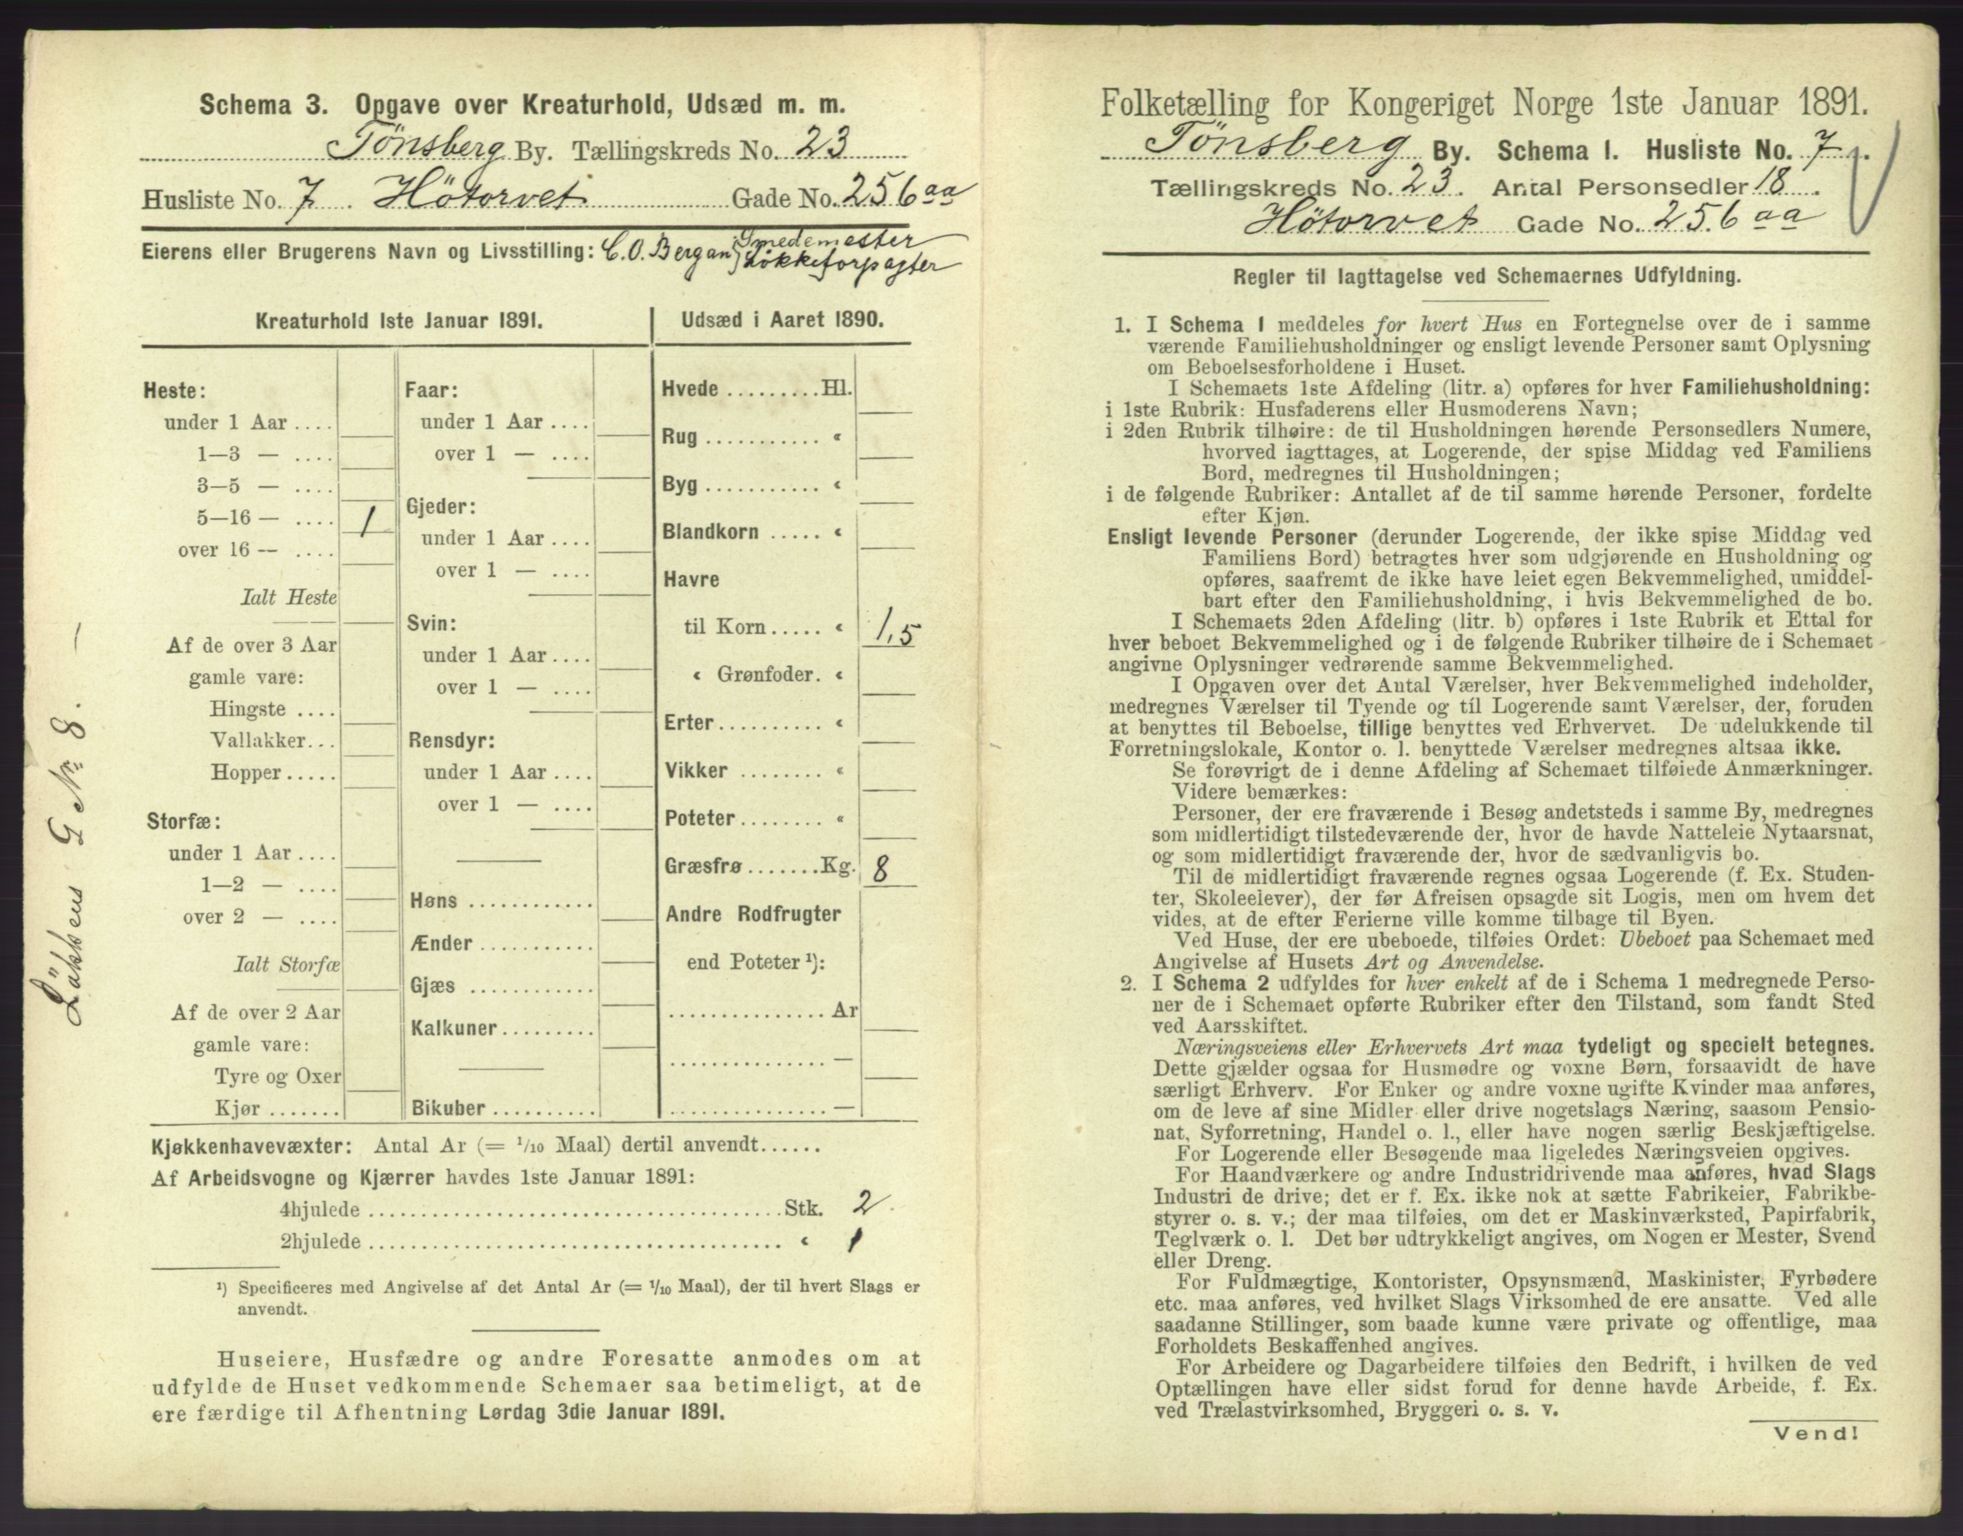 Løkkens G Nr 8. —
Schema 3. Opgave over Kreaturhold, Udsæd m. m.
Tönsberg By. Tællingskreds No. 23
Husliste No. 7. Hötorvet Gade No. 256 aa
Eierens eller Brugerens Navn og Livsstilling: C. O. Bergan, Smedemester
Løkkeforpagter
Kreaturhold 1ste Januar 1891.
Heste:
under 1 Aar ....
1—3 — ....
3—5 — ....
5—16 — .... 1
over 16 — ....
Ialt Heste
Af de over 3 Aar
gamle vare:
Hingste ....
Vallakker...
Hopper.....
Storfæ:
under 1 Aar ....
1—2 — ....
over 2 — ....
Ialt Storfæ
Af de over 2 Aar
gamle vare:
Tyre og Oxer
Kjør .......
Faar:
under 1 Aar ....
over 1 — ....
Gjeder:
under 1 Aar ....
over 1 — ....
Svin:
under 1 Aar ....
over 1 — ....
Rensdyr:
under 1 Aar ....
over 1 — ....
Høns ............
Ænder ...........
Gjæs ............
Kalkuner.........
Bikuber ..........
Udsæd i Aaret 1890.
Hvede .........Hl.
Rug ........... «
Byg ........... «
Blandkorn ..... «
Havre
til Korn..... « 1,5
« Grønfoder. «
Erter.......... «
Vikker ........ «
Poteter........ «
Græsfrø.......Kg. 8
Andre Rodfrugter
end Poteter ¹):
............... Ar
............... —
............... —
Kjøkkenhavevæxter: Antal Ar (= 1/10 Maal) dertil anvendt......
Af Arbeidsvogne og Kjærrer havdes 1ste Januar 1891:
4hjulede ......................................Stk. 2
2hjulede ...................................... « 1
¹) Specificeres med Angivelse af det Antal Ar (= 1/10 Maal), der til hvert Slags er
anvendt.
Huseiere, Husfædre og andre Foresatte anmodes om at
udfylde de Huset vedkommende Schemaer saa betimeligt, at de
ere færdige til Afhentning Lørdag 3die Januar 1891.
Folketælling for Kongeriget Norge 1ste Januar 1891.
Tönsberg By. Schema 1. Husliste No. 7.
Tællingskreds No. 23. Antal Personsedler 18.
Hötorvet Gade No. 256 aa
Regler til Iagttagelse ved Schemaernes Udfyldning.
1. I Schema 1 meddeles for hvert Hus en Fortegnelse over de i samme
værende Familiehusholdninger og ensligt levende Personer samt Oplysning
om Beboelsesforholdene i Huset.
I Schemaets 1ste Afdeling (litr. a) opføres for hver Familiehusholdning:
i 1ste Rubrik: Husfaderens eller Husmoderens Navn;
i 2den Rubrik tilhøire: de til Husholdningen hørende Personsedlers Numere,
hvorved iagttages, at Logerende, der spise Middag ved Familiens
Bord, medregnes til Husholdningen;
i de følgende Rubriker: Antallet af de til samme hørende Personer, fordelte
efter Kjøn.
Ensligt levende Personer (derunder Logerende, der ikke spise Middag ved
Familiens Bord) betragtes hver som udgjørende en Husholdning og
opføres, saafremt de ikke have leiet egen Bekvemmelighed, umiddel-
bart efter den Familiehusholdning, i hvis Bekvemmelighed de bo.
I Schemaets 2den Afdeling (litr. b) opføres i 1ste Rubrik et Ettal for
hver beboet Bekvemmelighed og i de følgende Rubriker tilhøire de i Schemaet
angivne Oplysninger vedrørende samme Bekvemmelighed.
I Opgaven over det Antal Værelser, hver Bekvemmelighed indeholder,
medregnes Værelser til Tyende og til Logerende samt Værelser, der, foruden
at benyttes til Beboelse, tillige benyttes ved Erhvervet. De udelukkende til
Forretningslokale, Kontor o. l. benyttede Værelser medregnes altsaa ikke.
Se forøvrigt de i denne Afdeling af Schemaet tilføiede Anmærkninger.
Videre bemærkes:
Personer, der ere fraværende i Besøg andetsteds i samme By, medregnes
som midlertidigt tilstedeværende der, hvor de havde Natteleie Nytaarsnat,
og som midlertidigt fraværende der, hvor de sædvanligvis bo.
Til de midlertidigt fraværende regnes ogsaa Logerende (f. Ex. Studen-
ter, Skoleelever), der før Afreisen opsagde sit Logis, men om hvem det
vides, at de efter Ferierne ville komme tilbage til Byen.
Ved Huse, der ere ubeboede, tilføies Ordet: Ubeboet paa Schemaet med
Angivelse af Husets Art og Anvendelse.
2. I Schema 2 udfyldes for hver enkelt af de i Schema 1 medregnede Perso-
ner de i Schemaet opførte Rubriker efter den Tilstand, som fandt Sted
ved Aarsskiftet.
Næringsveiens eller Erhvervets Art maa tydeligt og specielt betegnes.
Dette gjælder ogsaa for Husmødre og voxne Børn, forsaavidt de have
særligt Erhverv. For Enker og andre voxne ugifte Kvinder maa anføres,
om de leve af sine Midler eller drive nogetslags Næring, saasom Pensio-
nat, Syforretning, Handel o. l., eller have nogen særlig Beskjæftigelse.
For Logerende eller Besøgende maa ligeledes Næringsveien opgives.
For Haandværkere og andre Industridrivende maa anføres, hvad Slags
Industri de drive; det er f. Ex. ikke nok at sætte Fabrikeier, Fabrikbe-
styrer o. s. v.; der maa tilføies, om det er Maskinværksted, Papirfabrik,
Teglværk o. l. Det bør udtrykkeligt angives, om Nogen er Mester, Svend
eller Dreng.
For Fuldmægtige, Kontorister, Opsynsmænd, Maskinister, Fyrbødere
etc. maa anføres, ved hvilket Slags Virksomhed de ere ansatte. Ved alle
saadanne Stillinger, som baade kunne være private og offentlige, maa
Forholdets Beskaffenhed angives.
For Arbeidere og Dagarbeidere tilføies den Bedrift, i hvilken de ved
Optællingen have eller sidst forud for denne havde Arbeide, f. Ex.
ved Trælastvirksomhed, Bryggeri o. s. v.
Vend!